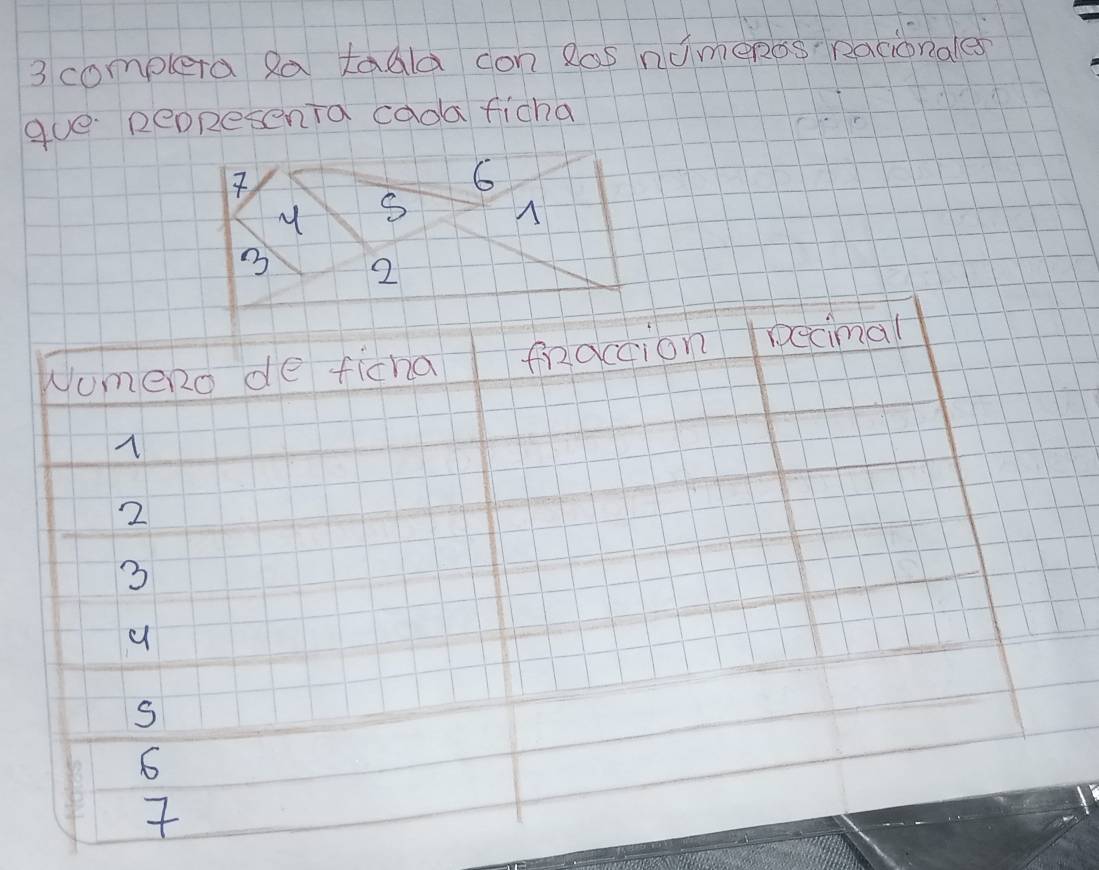 3 completa la tabla con los números Racionales
que Representa cada ficha
7 6
4 5 1
3 2
Numero de ficha fraccion Decimal
1
2
3
4
5
6
7